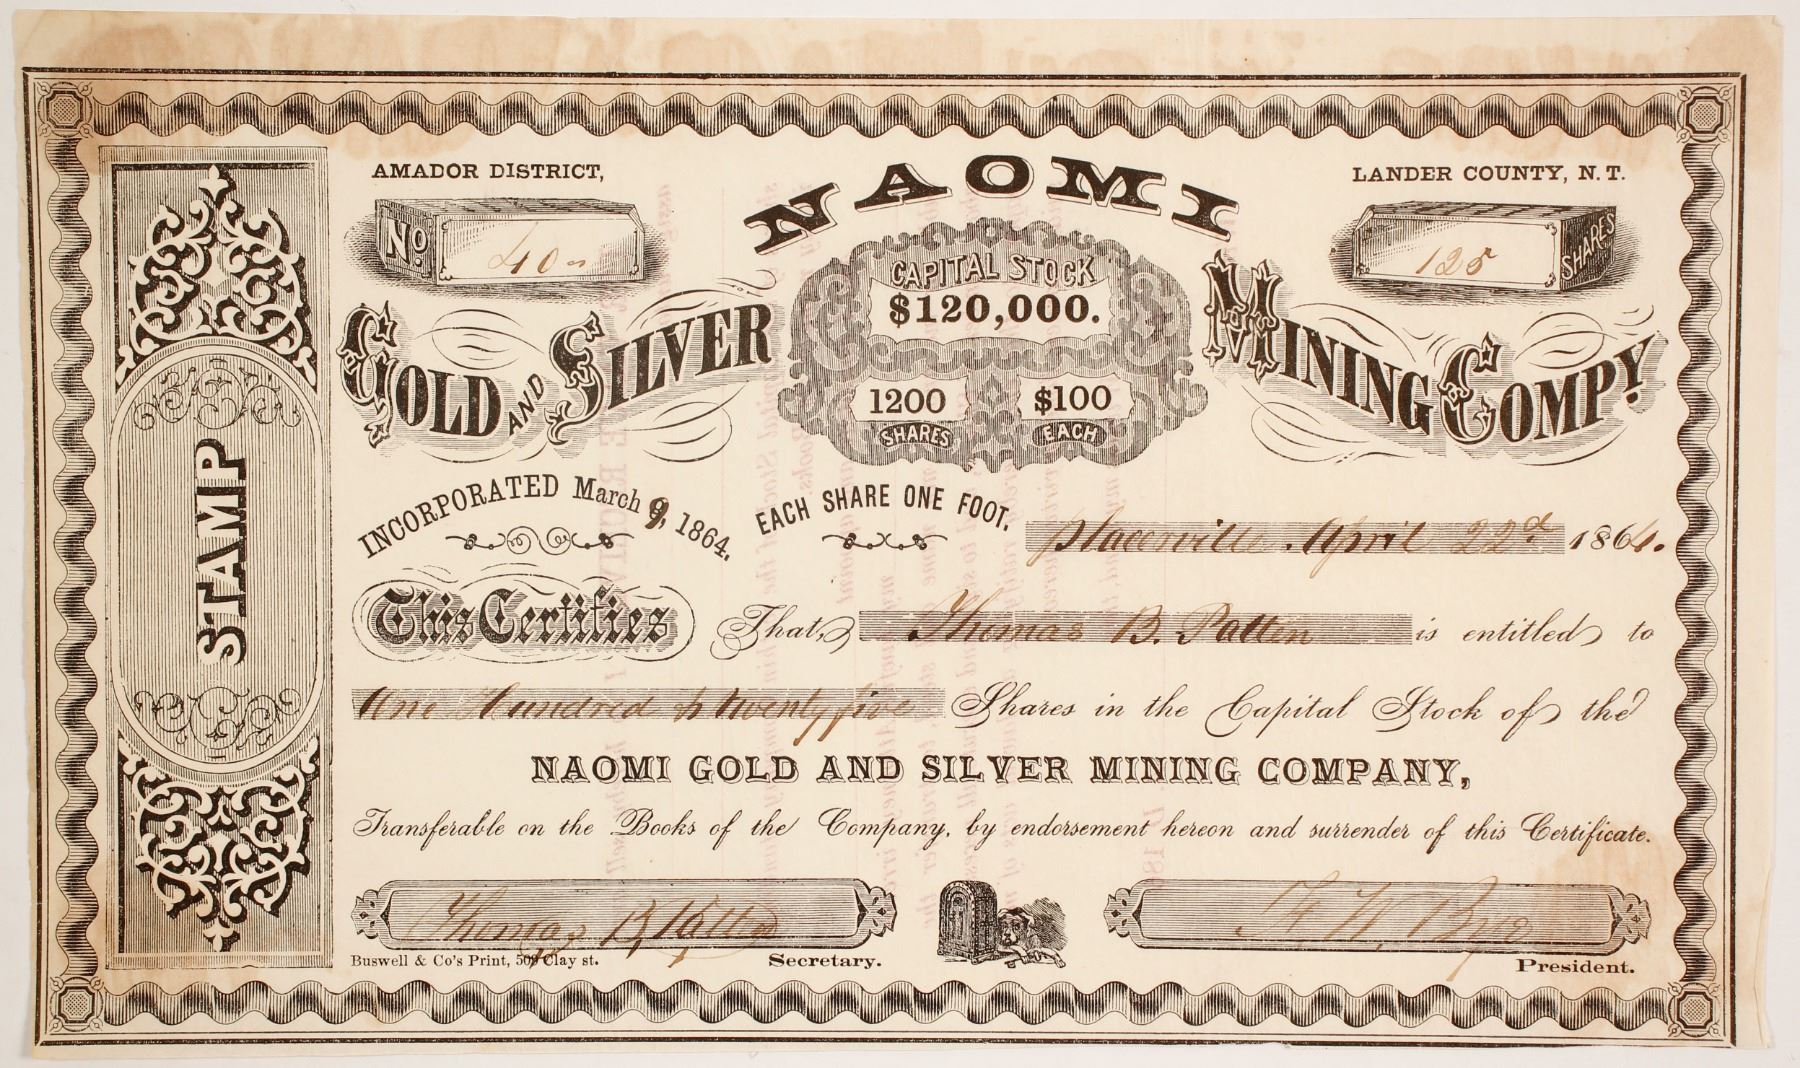 AMADOR DISTRICT,
NAOMI
LANDER COUNTY, N. T.
No 40
125 SHARES
GOLD AND SILVER MINING COMPY.
CAPITAL STOCK
$120,000.
1200 SHARES
$100 EACH
INCORPORATED March 9, 1864.
EACH SHARE ONE FOOT.
Placerville April 22d 1864.
This Certifies That, Thomas B. Patten is entitled to
One Hundred & twenty five Shares in the Capital Stock of the
NAOMI GOLD AND SILVER MINING COMPANY,
Transferable on the Books of the Company, by endorsement hereon and surrender of this Certificate.
Thomas B. Patten
F. W.
Buswell & Co's Print, 509 Clay st.
Secretary.
President.
STAMP